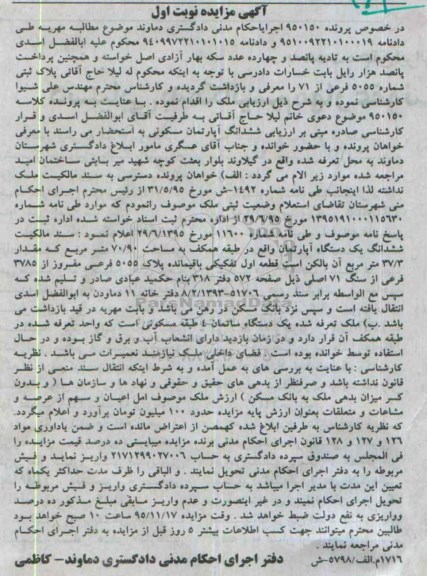 آگهی مزایده نوبت اول
در خصوص پرونده ۹۵۰۱۵۰ اجرایاحکام مدنی دادگستری دماوند موضوع مطالبه مهریه طی
دادنامه ۹۵۱۰۰۹۲۲۱۰۱۰۰۰۱۹ و دادنامه ۹۴۰۹۹۷۲۲۱۰۱۰۱۰۱۵ محکوم علیه ابالفضل اسدی
محکوم است به تادیه پانصد و چهارده عدد سکه بهار آزادی اصل خواسته و همچنین پرداخت
پانصد هزار رایل بابت خسارات دادرسی با توجه به اینکه محکوم له لیلا حاج آقائی پلاک ثبتی
شماره ۵۰۵۵ فرعی از ۷۱ را معرفی و بازداشت گردیده و کارشناس محترم مهندس علی شیوا
کارشناسی نموده و به شرح ذیل ارزیابی ملک را اقدام نموده . با عنایت به پرونده کلاسه
۹۵۰۱۵۰ موضوع دعوی خانم لیلا حاج آقائی به طرفیت آقای ابوالفضل اسدی و قرار
کارشناسی صادره مبنی بر ارزیابی ششدانگ آپارتمان مسکونی به استحضار می راسند با معرفی
خواهان پرونده و با حضور خوانده و جناب آقای عسگری مامور ابلاغ دادگستری شهرستان
دماوند به محل تعرفه شده واقع در گیلاوند بلوار بعثت کوچه شهید میر باینی ساختمان امید
مراجعه شده موارد زیر الام می گردد : الف) خواهان پرونده دسترسی به سند مالکیت ملک
نداشته لذا اینجانب طی نامه شماره ۱۴۹۲-ش مورخ ۳۱/۵/۹۵ از رئیس محترم اجرای احکام
منی شهرستان تقاضای استعلام وضعیت ثبتی ملک موصوف رانمودم که موارد طی نامه شماره
۱۳۹۵۱۹۱۰۰۰۱۱۵۶۳۰ مورخ ۲۹/۶/۹۵ از اداره محترم ثبت اسناد خواسته شده اداره ثبت در
پاسخ نامه موصوف و طی نامه شماره ۱۱۶۰۰ مورخ ۲۹/۶/۱۳۹۵ اعلام نمود : سند مالکیت
ششدانگ یک دستگاه آپارتمان واقع در طبقه همکف به مساحت ۷۰/۹۰ متر مربع که مقدار
۳۷/۳ متر مربع آن بالکن است قطعه اول تفکیکی باقیمانده پلاک ۵۰۵۵ فرعی مفروز از ۳۷۸۵
فرعی از سنگ ۷۱ اصلی ذیل صفحه ۵۷۲ دفتر ۳۱۸ بنام حکمید عبادی صادر و تسلیم شده که
سپس مع الواسطه برابر سند رسمی ۵۱۷۰۶-۸/۲/۱۳۹۳ دفتر خانه ۱۱ دماودن به ابوالفضل اسدی
انتقال یافته است و سپس نزد بانک مسکن در رهن می باشد و بابت مهریه در قید بازداشت می
باشد .ب) ملک تعرفه شده یک دستگاه ساتمان ۴ طبقه مسکونی است که واحد تعرفه شده در
طبقه همکف آن قرار دارد و در زمان بازدید دارای انشعاب آب و برق و گاز بـوده و در حال
استفاده توسط خوانده بوده است . فضای داخلی ملک نیازمند تعمیرات می باشد . نظریه
کارشناسی : با عنایت به بررسی های به عمل آمده و به شرط اینکه انتقال سند منعی از نظر
قانون نداشته باشد و صرفنظر از بدهی های حقیق و حقوقی و نهاد ها و سازمان ها ( و بدون
کسر میزان بدهی ملک به بانک مسکن ) ارزش ملک موصوف امل اعیان و سهم از عرصه و
مشاعات و متعلقات بعنوان ارزش پایه مزایده حدود ۱۰۰ میلیون تومان برآورد و اعلام میگردد.
که نظریه کارشناس به طرفین ابلاغ شده کهمصن از اعتراض مانده است و ضمن یاداوری مواد
۱۲۶ و ۱۲۷ و ۱۲۸ قانون اجرای احکام مدنی برنده مزایده میبایستی ده درصد قیمت مزایده را
فی المجلس به صندوق سپرده دادگستری به حساب ۲۱۷۱۲۹۹۰۲۷۰۰۶ واریـز نمایـد و فـیش
مربوطه را به دفتر اجرای احکام مدنی تحویل نمایند . و الباقی را ظرف مدت حداکثر یکماه که
تعیین این مدت با مدیر اجرا میباشد به حساب سپرده دادگستری واریـز و فیش مربوطـه را
تحویل اجرای احکام نمیند و در غیر اینصورت و عدم واریـز مـابقی مبلـغ مـذکور ده درصـد
وواریزی به نفع دولت ضبط خواهد شد . وقت مزایده ۹۵/۱۱/۱۷ ساعت ۱۰ صبح خواهد بود
طالبین محترم میتوانند جهت کسب اطلاعات بیشتر ۵ روز قبل از مزایده به دفتر اجرای احکـام
مدنی مراجعه نمایند .
۱۷۱۶م.الف/۵۷۹۸-ش دفتر اجرای احکام مدنی دادگستری دماوند- کاظمی